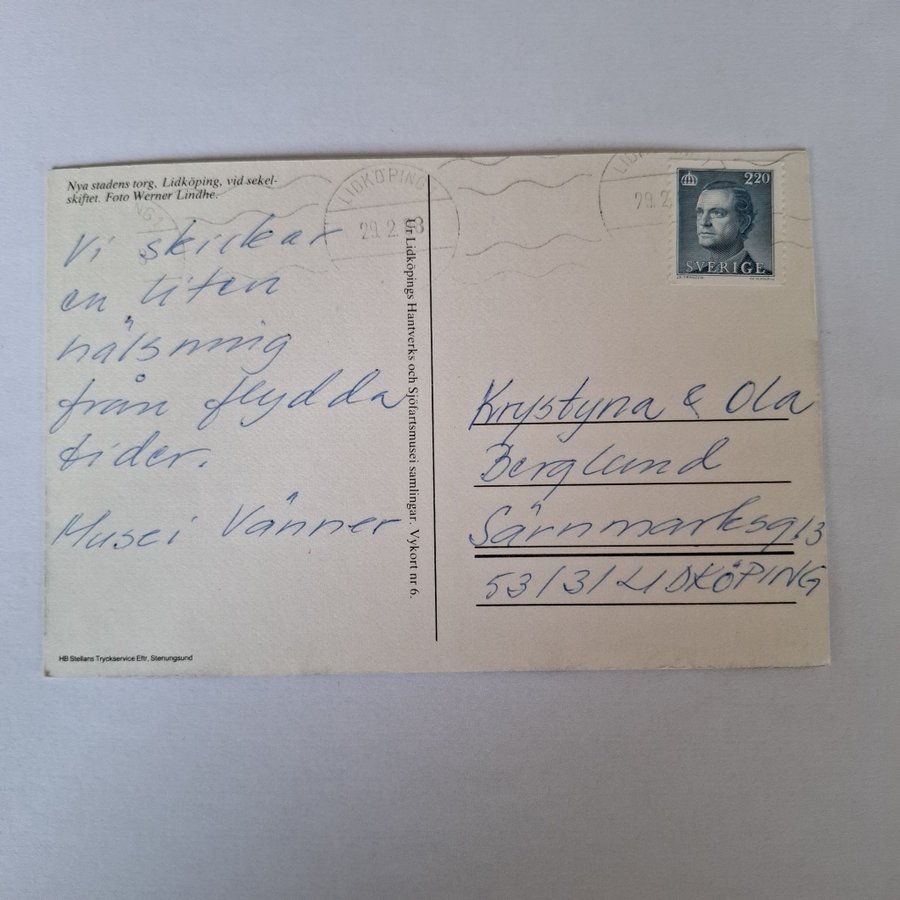 Nya stadens torg, Lidköping, vid sekel-
skiftet. Foto Werner Lindhe.
LIDKÖPING
29.2. 8
LIDKÖPING
29.2
220
SVERIGE
Vi skickar
en liten
hälsning
från flydda
tider.
Musei Vänner
Ur Lidköpings Hantverks och Sjöfartsmusei samlingar. Vykort nr 6.
Krystyna & Ola
Berglund
Särnmarksg 13
53131 LIDKÖPING
HB Stellans Tryckservice Eftr, Stenungsund